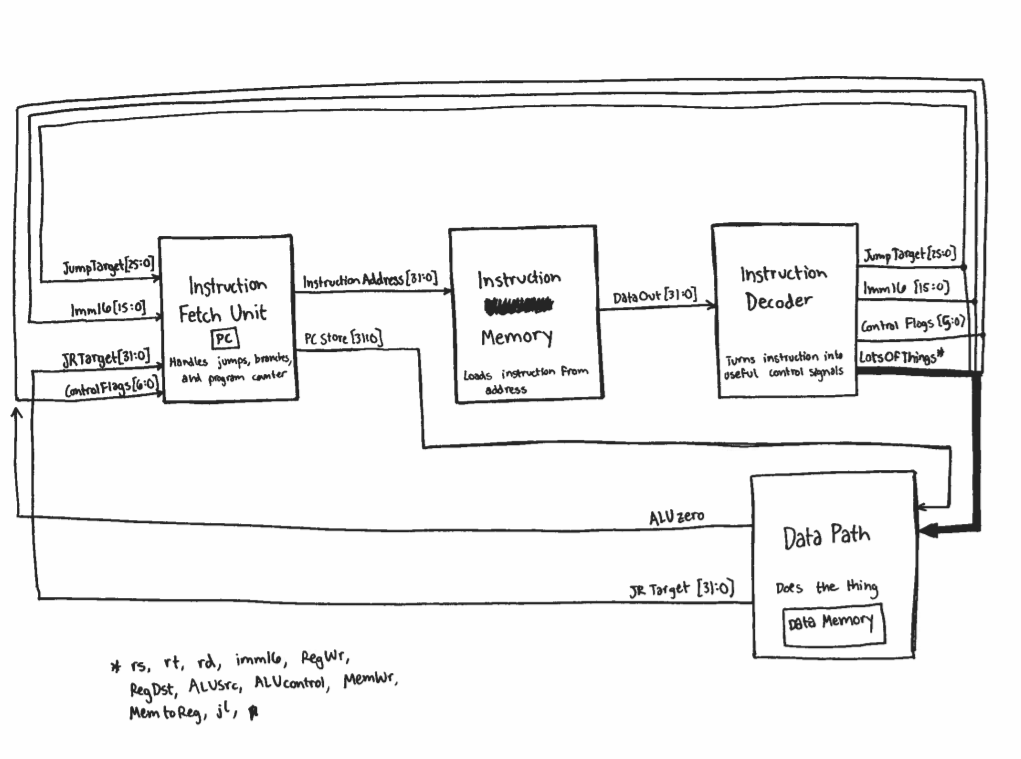 JumpTarget[25:0]
Imm16[15:0]
JRTarget[31:0]
ControlFlags[6:0]
Instruction
Fetch Unit
PC
Handles jumps, branches,
and program counter
InstructionAddress[31:0]
PC Store[31:0]
Instruction
Memory
Loads instruction from
address
DataOut[31:0]
Instruction
Decoder
Turns instruction into
useful control signals
JumpTarget[25:0]
Imm16 [15:0]
Control Flags[5:0]
LotsOfThings*
ALUzero
JR Target [31:0]
Data Path
Does the thing
Data Memory
* rs, rt, rd, imm16, RegWr,
RegDst, ALUsrc, ALUcontrol, MemWr,
MemtoReg, jl,